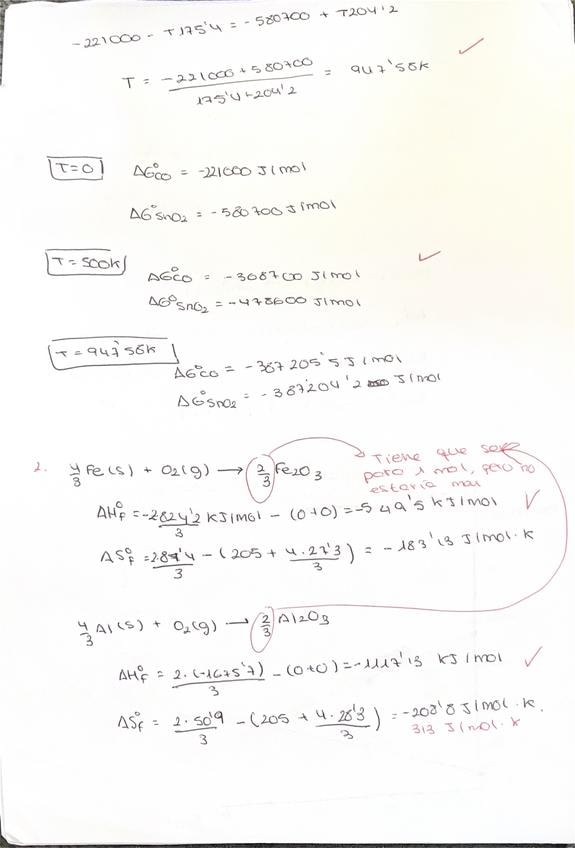 -221000 - T175'4 = -580700 + T204'2
T = -221000+580700 / 175'4+204'2 = 947'56K
T=0 ΔG°CO = -221000 J/mol
ΔG°SnO2 = -580700 J/mol
T=500K ΔG°CO = -308700 J/mol
ΔG°SnO2 = -478600 J/mol
T=947'56K ΔG°CO = -387205'5 J/mol
ΔG°SnO2 = -387204'2 J/mol
2. 4/3 Fe(s) + O2(g) → 2/3 Fe2O3
Tiene que ser
para 1 mol, pero no
estaria mal
ΔH°f = -2·824'2 kJ/mol / 3 - (0+0) = -549'5 kJ/mol
ΔS°f = 2·87'4 / 3 - (205 + 4·27'3 / 3) = -183'13 J/mol·K
4/3 Al(s) + O2(g) → 2/3 Al2O3
ΔH°f = 2·(-1675'7) / 3 - (0+0) = -1117'13 kJ/mol
ΔS°f = 2·50'9 / 3 - (205 + 4·28'3 / 3) = -208'8 J/mol·K.
313 J/mol·K